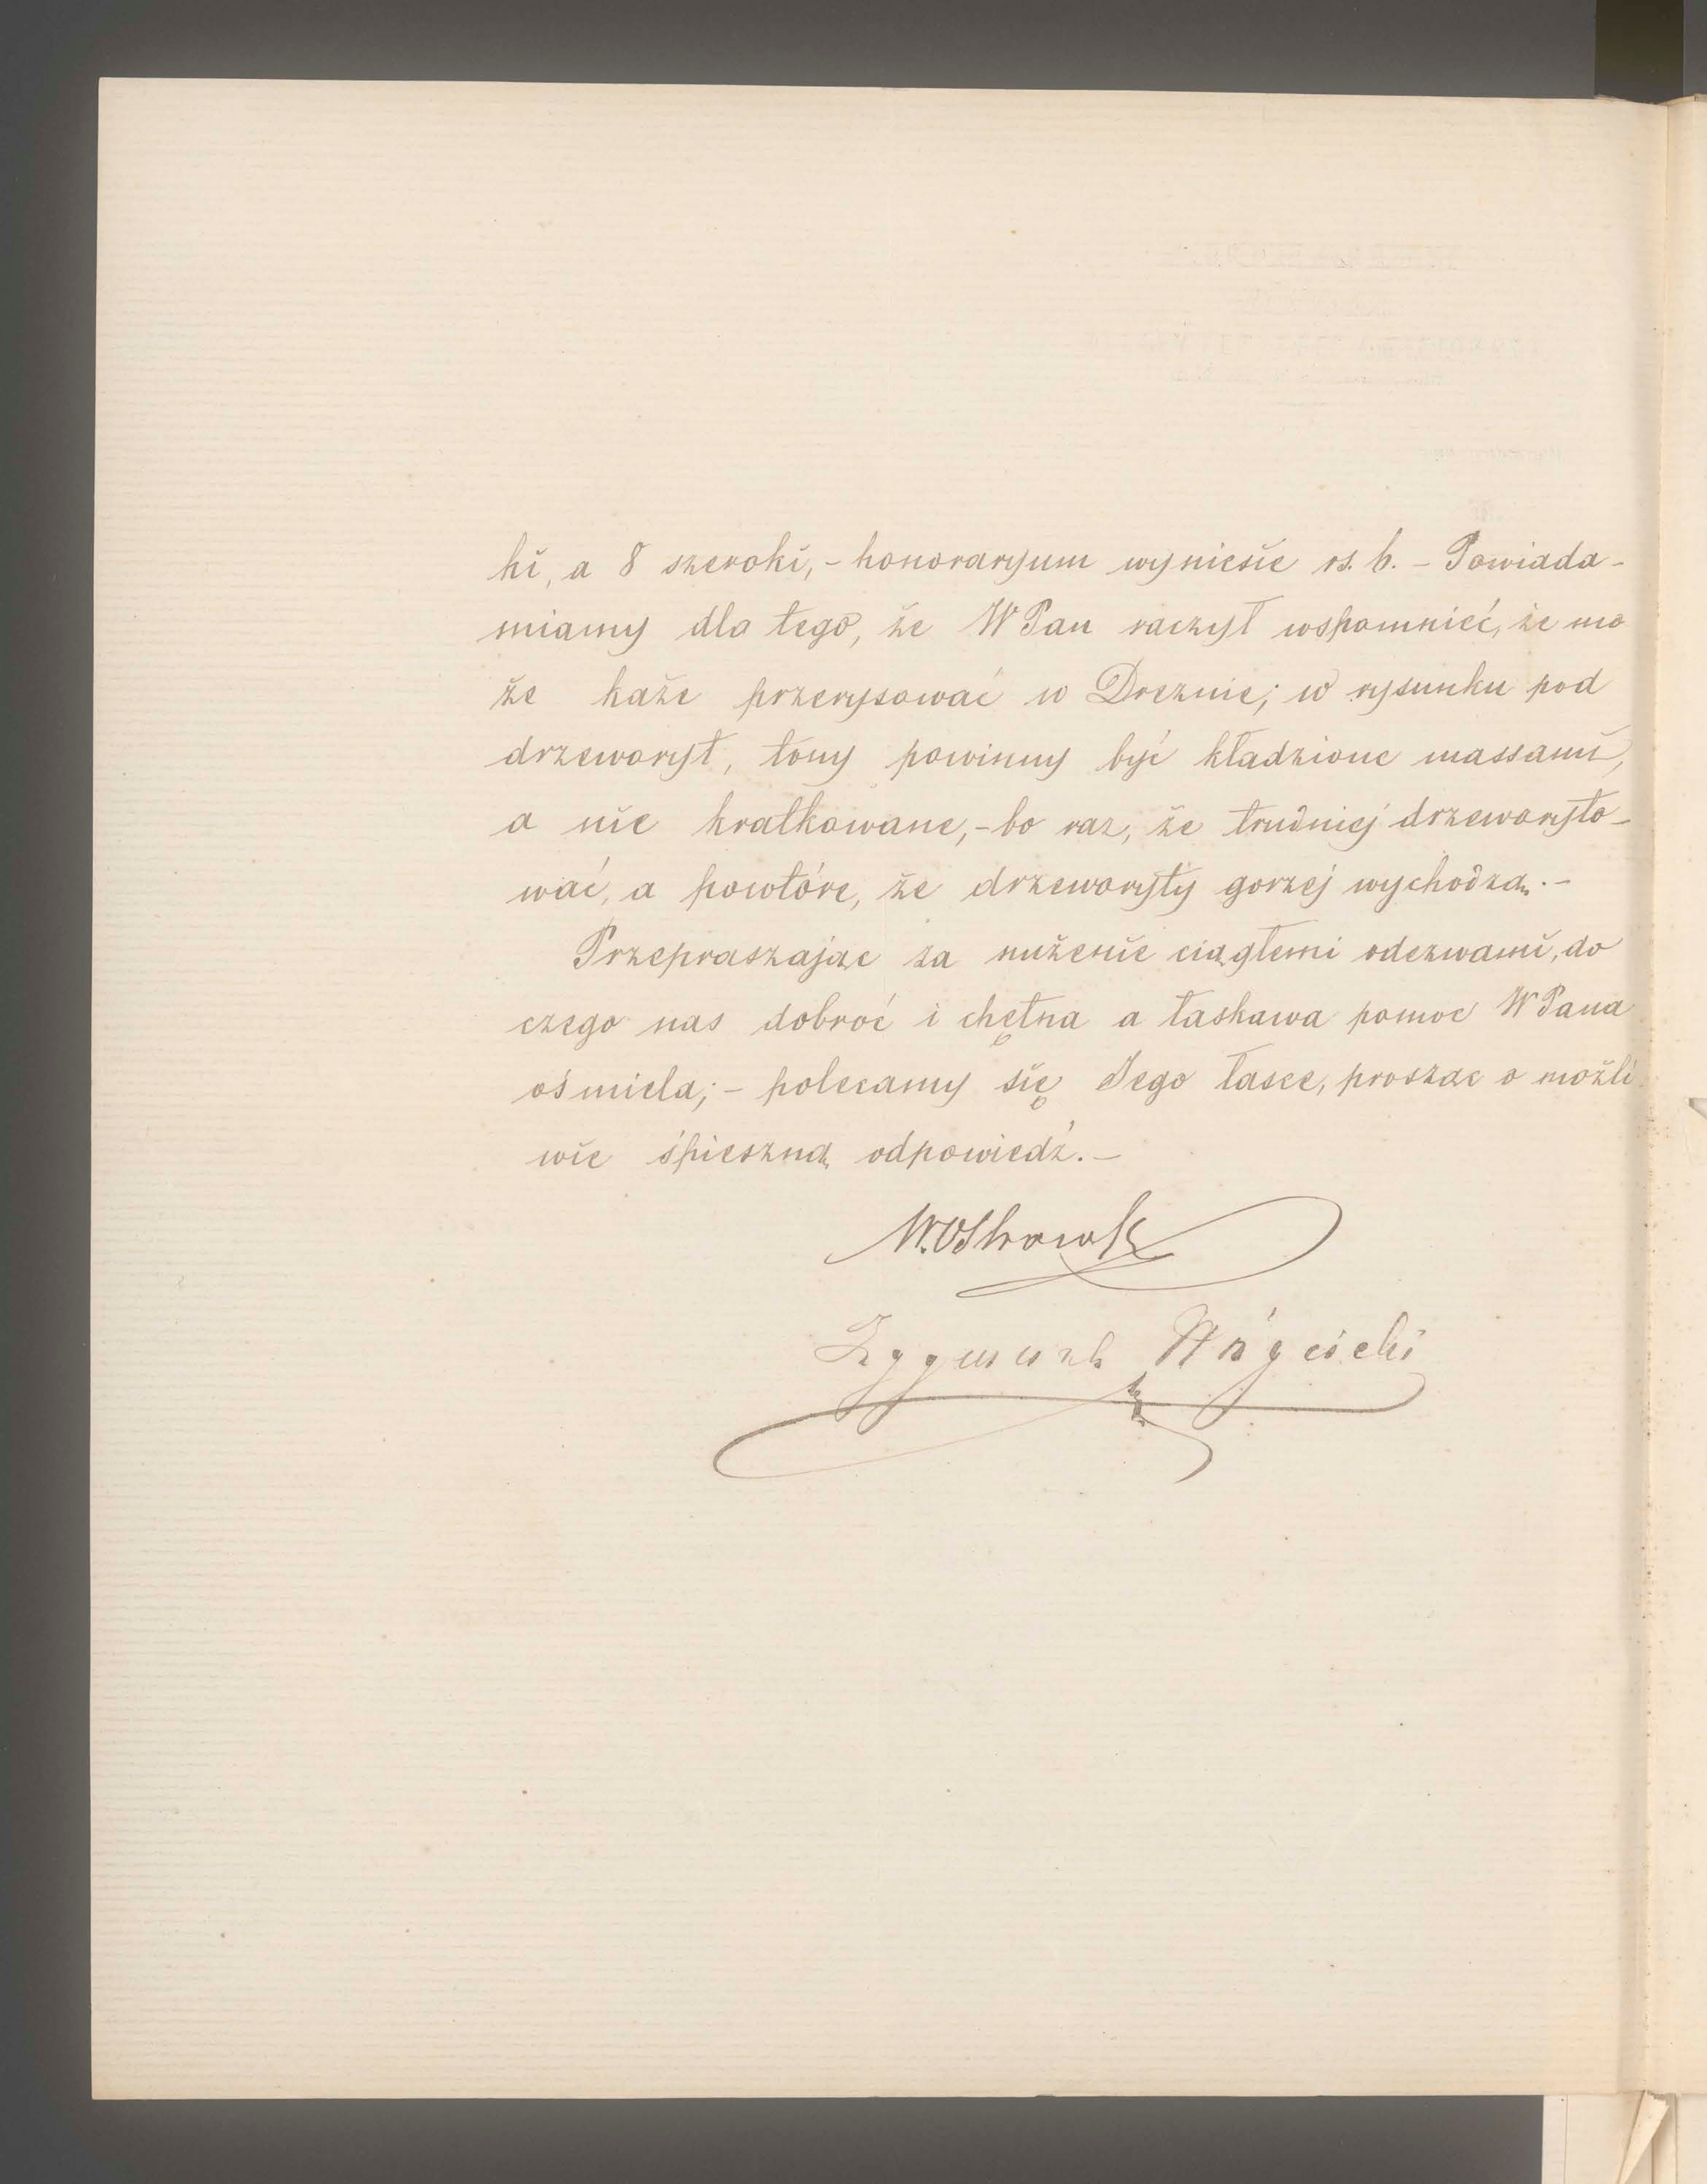 ki, a 8 szeroki, - honoraryum wyniesie rs. 6. - Powiada-
miamy dla tego, że WPan raczył wspomnieć, że mo
że każe przerysować w Dreznie; w rysunku pod
drzeworyt, tony powinny być kładzione massami,
a nie kratkowane, - bo raz, że trudniej drzeworyto-
wać, a powtóre, że drzeworyty gorzej wychodzą. -
Przepraszając za nużenie ciągłemi odezwami, do
czego nas dobroć i chętna a łaskawa pomoc WPana
ośmiela; - polecamy się Jego łasce, prosząc o możli
wie śpieszną odpowiedź. -
Zygmunt